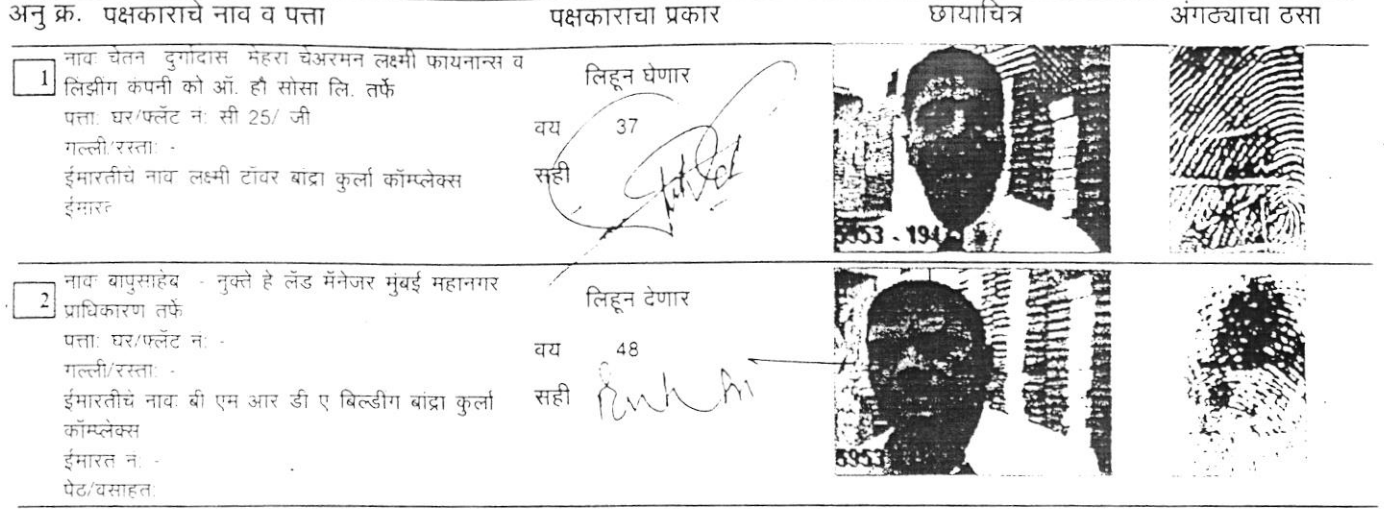 अनु क्र. पक्षकाराचे नाव व पत्ता पक्षकाराचा प्रकार छायाचित्र अंगठ्याचा ठसा
1 नावः चेतन दुर्गादास मेहरा चेअरमन लक्ष्मी फायनान्स व
लिझींग कंपनी को ऑ. हौ सोसा लि. तर्फे
लिहून घेणार
पत्ता: घर/फ्लॅट नं: सी 25/ जी
गल्ली/रस्ता: -
ईमारतीचे नावः लक्ष्मी टॉवर बांद्रा कुर्ला कॉम्प्लेक्स
ईमारत
वय 37
सही
5953 - 194
2 नावः बापुसाहेब - नुक्ते हे लॅड मॅनेजर मुंबई महानगर
प्राधिकारण तर्फे
लिहून देणार
पत्ता: घर/फ्लॅट नं: -
गल्ली/रस्ता: -
ईमारतीचे नावः बी एम आर डी ए बिल्डीग बांद्रा कुर्ला
कॉम्प्लेक्स
ईमारत नं: -
पेठ/वसाहत:
वय 48
सही
5953